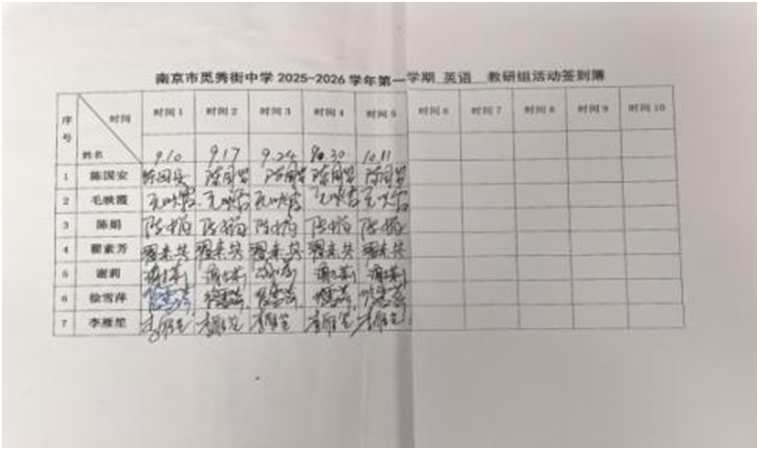 南京市觅秀街中学 2025-2026 学年第一学期 英语 教研组活动签到簿
序号 时间 姓名 时间 1 时间 2 时间 3 时间 4 时间 5 时间 6 时间 7 时间 8 时间 9 时间 10
9.10 9.17 9.24 9.30 10.11
1 陈国安 陈国安 陈国安 陈国安 陈国安 陈国安
2 毛映霞 毛映霞 毛映霞 毛映霞 毛映霞 毛映霞
3 陈娟 陈娟 陈娟 陈娟 陈娟 陈娟
4 翟素芳 翟素芳 翟素芳 翟素芳 翟素芳 翟素芳
5 谢莉 谢莉 谢莉 谢莉 谢莉 谢莉
6 徐雪萍 徐雪萍 徐雪萍 徐雪萍 徐雪萍 徐雪萍
7 李雁笙 李雁笙 李雁笙 李雁笙 李雁笙 李雁笙